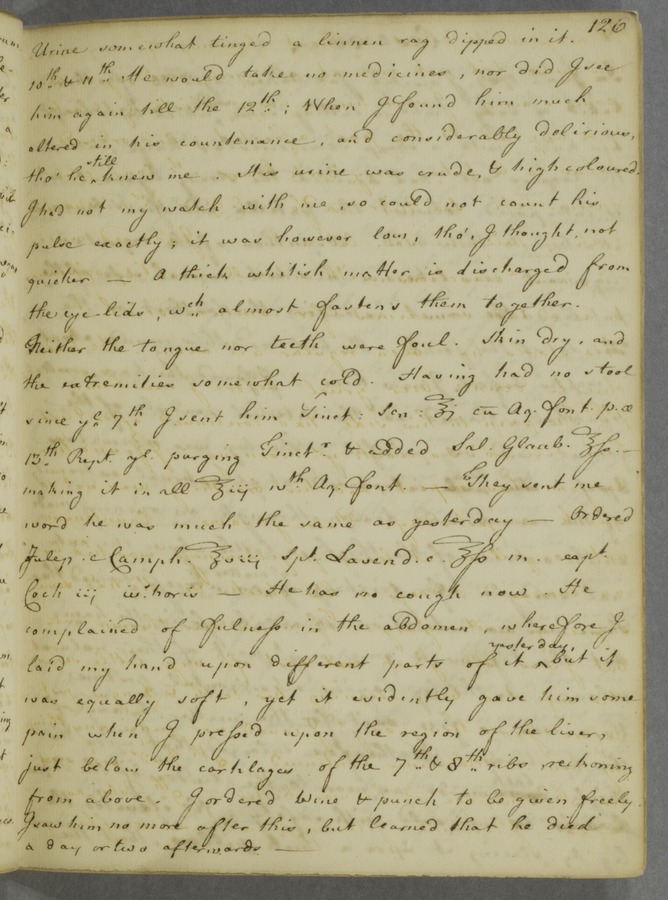 126
Urine somewhat tinged a linnen rag dipped in it.
10th & 11th He would take no medicines, nor did I see
him again till the 12th; When I found him much
altered in his countenance, and considerably delirious,
tho' he still knew me. His urine was crude, & high coloured.
I had not my watch with me, so could not count his
pulse exactly; it was however low, tho', I thought, not
quicker — A thick whitish matter is discharged from
the eye-lids, wch almost fastens them together.
Neither the tongue nor teeth were foul. Skin dry, and
the extremities somewhat cold. Having had no stool
since ye 7th I sent him Tinct: Sen: ℥j cu Aq. font. p. æ
13th Rept. yl. purging Tinctr & added Sal. Glaub. ℥ſs. —
making it in all ℥iij wth Aq. font. — They sent me
word he was much the same as yesterday — Ordered
Julep. e Camph. ℥viij Spt. Lavend. c. ℥ſs m. capt.
Coch iij horis — He has no cough now. He
complained of fulneſs in the abdomen, wherefore I
laid my hand upon different parts of it yesterday, but it
was equally soft, yet it evidently gave him some
pain when I preſsed upon the region of the liver,
just below the cartilages of the 7th & 8th ribs reckoning
from above. I ordered wine & punch to be given freely.
I saw him no more after this, but learned that he died
a day or two afterwards —